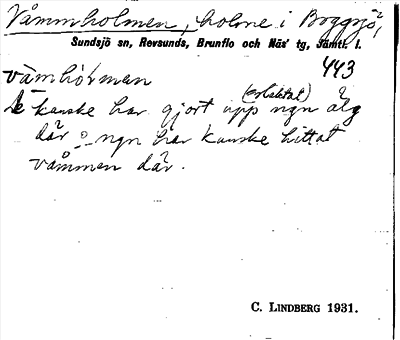 Våmmholmen, holme i Boggsjö,
Sundsjö sn, Revsunds, Brunflo och Näs' tg, Jämtl. l.
443
våmhó̀rman
De kanske har gjort upp (slaktat) ngn älg
där o. ngn har kanske hittat
våmmen där.
C. LINDBERG 1931.